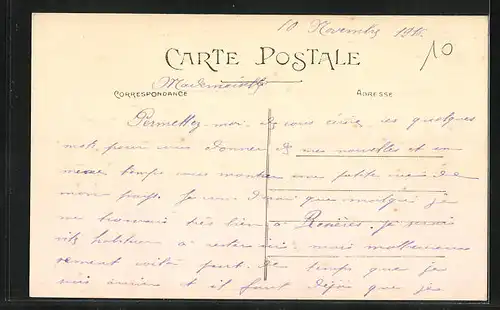 10 Novembre 191
10
CARTE POSTALE
Mademoiselle
CORRESPONDANCE
ADRESSE
Permettez-moi de vous écrire ces quelques
mots pour vous donner de mes nouvelles et en
même temps vous montrer une petite de
mon pays. Je vous dirai que malgré je
me trouvais très bien à je serais
vite habituer à rester ici mais malheureu
sement voilà peut de temps que je
suis arrivé et il faut déjà que je